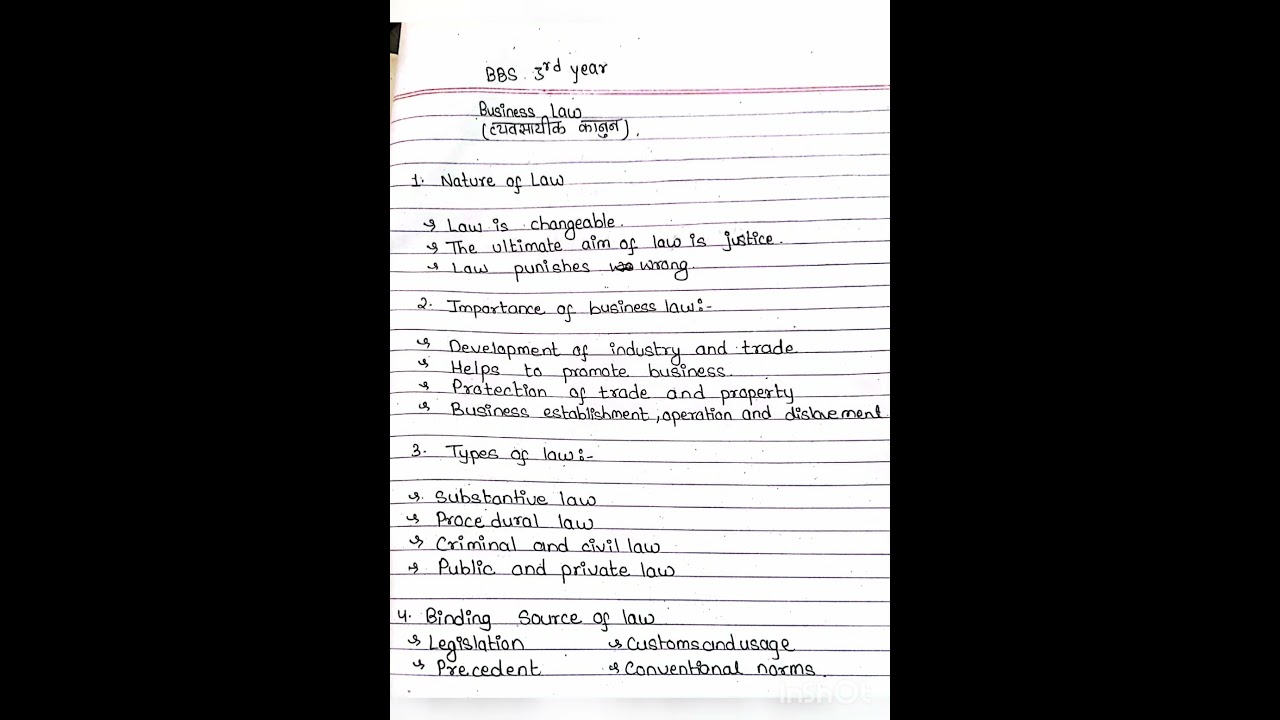 BBS. 3rd year
Business Law
(व्यवसायीक कानुन).
1. Nature of Law
→ Law is changeable.
→ The ultimate aim of law is justice.
→ Law punishes wrong.
2. Importance of business law:-
→ Development of industry and trade
→ Helps to promote business.
→ Protection of trade and property
→ Business establishment, operation and
3. Types of law:-
→ Substantive law
→ Procedural law
→ Criminal and civil law
→ Public and private law
4. Binding Source of law
→ Legislation → Customs and usage
→ Precedent → Conventional norms.
InShOt